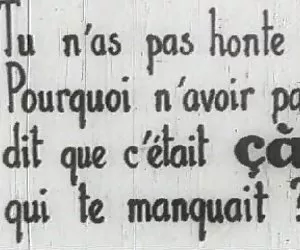 Tu n'as pas honte
Pourquoi n'avoir pa
dit que c'était çà
qui te manquait ?